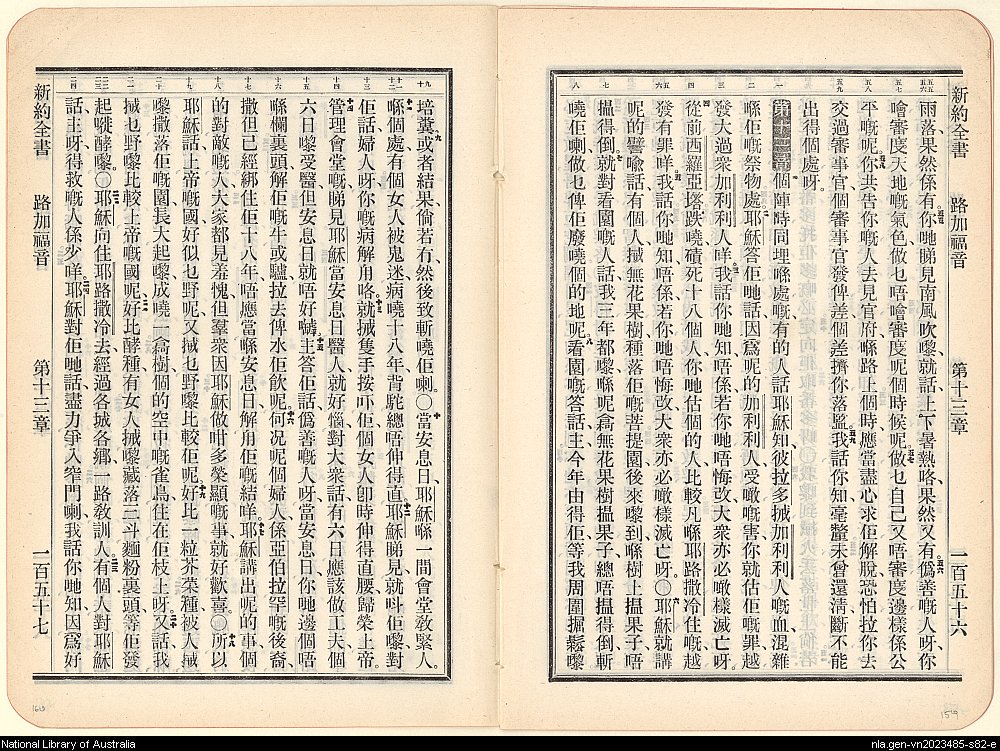 新約全書 路加福音 第十三章 一百五十六
雨落果然係有你哋睇見南風吹嚟就話上下暑熱咯果然又有僞善嘅人呀你
噲審度天地嘅氣色做乜唔噲審度呢個時候呢做乜自己又唔審度邊樣係公
平嘅呢你共吿你嘅人去見官府喺路上個時應當盡心求佢解脫恐怕拉你去
交過審事官個審事官發俾差個差擠你落監我話你知毫釐未曾還淸斷不能
出得個處呀。
第十三章個陣時同埋喺處嘅有的人話耶穌知彼拉多搣加利利人嘅血混雜
喺佢嘅祭物處耶穌答佢哋話因爲呢的加利利人受噉嘅害你就估佢嘅罪越
發大過衆加利利人咩我話你哋知唔係若你哋唔悔改大衆亦必噉樣滅亡呀。
從前西羅亞塔跌嘵磧死十八個人你哋估個的人比較凡喺耶路撒冷住嘅越
發有罪咩我話你哋知唔係若你哋唔悔改大衆亦必噉樣滅亡呀。○耶穌就講
呢的譬喩話有個人搣無花果樹種落佢嘅菩提園後來嚟到喺樹上搵果子唔
搵得倒就對看園嘅人話我三年都嚟喺呢樖無花果樹搵果子總唔搵得倒斬
嘵佢喇做乜俾佢廢嘵個的地呢看園嘅答話主今年由得佢等我周圍掘鬆嚟
培糞或者結果倘若冇然後致斬嘵佢喇。○當安息日耶穌喺一間會堂敎緊人。
喺個處有個女人被鬼迷病嘵十八年背駝總唔伸得直耶穌睇見就呌佢嚟對
佢話婦人呀你嘅病解用咯就搣隻手按吓佢個女人卽時伸得直腰歸榮上帝
管理會堂嘅睇見耶穌當安息日醫人就好惱對大衆話有六日應該做工夫個
六日嚟受醫但安息日就唔好嚹主答佢話僞善嘅人呀當安息日你哋邊個唔
喺欄裏頭解佢嘅牛或驢拉去俾水佢飮呢何况呢個婦人係亞伯拉罕嘅後裔、
撒但已經綁住佢十八年唔應當喺安息日解用佢嘅結咩耶穌講出呢的事個
的對敵嘅人大家都見羞愧但羣衆因耶穌做咁多榮顯嘅事就好歡喜。○所以
耶穌話上帝嘅國好似乜野呢又搣乜野嚟比較佢呢好比一粒芥菜種被人搣
嚟撒落佢嘅園長大起嚟成嘵一樖樹個的空中嘅雀鳥住在佢枝上呀又話我
搣乜野嚟比較上帝嘅國呢好比酵種有女人搣嚟藏落三斗麵粉裏頭等佢發
起嘥酵嚟。○耶穌向住耶路撒冷去經過各城各鄉一路敎訓人有個人對耶穌
話主呀得救嘅人係少咩耶穌對佢哋話盡力爭入窄門喇我話你哋知因爲好
新約全書 路加福音 第十三章 一百五十七
National Library of Australia
nla.gen-vn2023485-s82-e